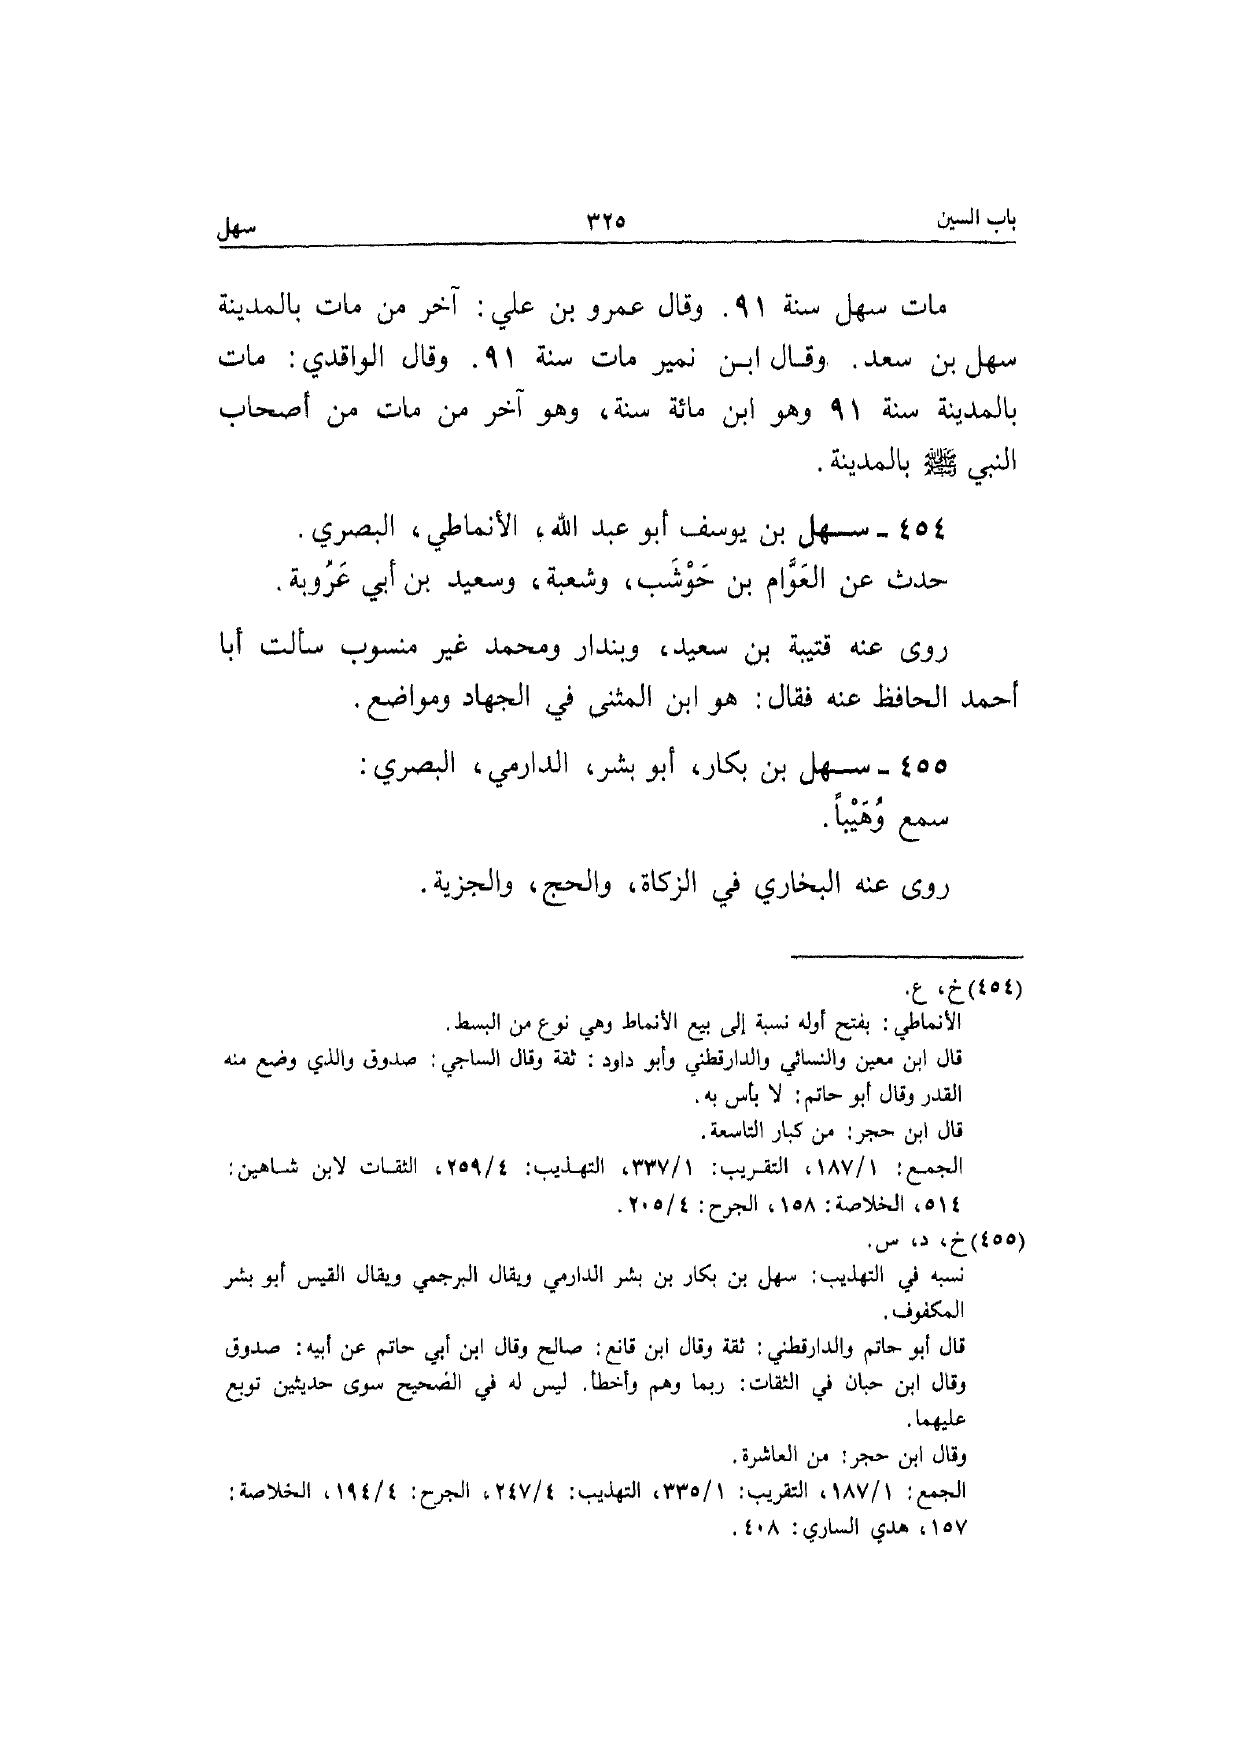 باب السين ٣٢٥ سهل
مات سهل سنة ٩١. وقال عمرو بن علي: آخر من مات بالمدينة
سهل بن سعد. وقال ابن نمير مات سنة ٩١. وقال الواقدي: مات
بالمدينة سنة ٩١ وهو ابن مائة سنة، وهو آخر من مات من أصحاب
النبي ﷺ بالمدينة.
٤٥٤ ـ سهل بن يوسف أبو عبد الله، الأنماطي، البصري.
حدث عن العَوَّام بن حَوْشَب، وشعبة، وسعيد بن أبي عَرُوبة.
روى عنه قتيبة بن سعيد، وبندار ومحمد غير منسوب سألت أبا
أحمد الحافظ عنه فقال: هو ابن المثنى في الجهاد ومواضع.
٤٥٥ ـ سهل بن بكار، أبو بشر، الدارمي، البصري:
سمع وُهَيْباً.
روى عنه البخاري في الزكاة، والحج، والجزية.
(٤٥٤) خ، ع.
الأنماطي: بفتح أوله نسبة إلى بيع الأنماط وهي نوع من البسط.
قال ابن معين والنسائي والدارقطني وأبو داود: ثقة وقال الساجي: صدوق والذي وضع منه
القدر وقال أبو حاتم: لا بأس به.
قال ابن حجر: من كبار التاسعة.
الجمع: ١/١٨٧، التقريب: ١/٣٣٧، التهذيب: ٤/٢٥٩، الثقات لابن شاهين:
٥١٤، الخلاصة: ١٥٨، الجرح: ٤/٢٠٥.
(٤٥٥) خ، د، س.
نسبه في التهذيب: سهل بن بكار بن بشر الدارمي ويقال البرجمي ويقال القيس أبو بشر
المكفوف.
قال أبو حاتم والدارقطني: ثقة وقال ابن قانع: صالح وقال ابن أبي حاتم عن أبيه: صدوق
وقال ابن حبان في الثقات: ربما وهم وأخطأ. ليس له في الصحيح سوى حديثين توبع
عليهما.
وقال ابن حجر: من العاشرة.
الجمع: ١/١٨٧، التقريب: ١/٣٣٥، التهذيب: ٤/٢٤٧، الجرح: ٤/١٩٤، الخلاصة:
١٥٧، هدي الساري: ٤٠٨.